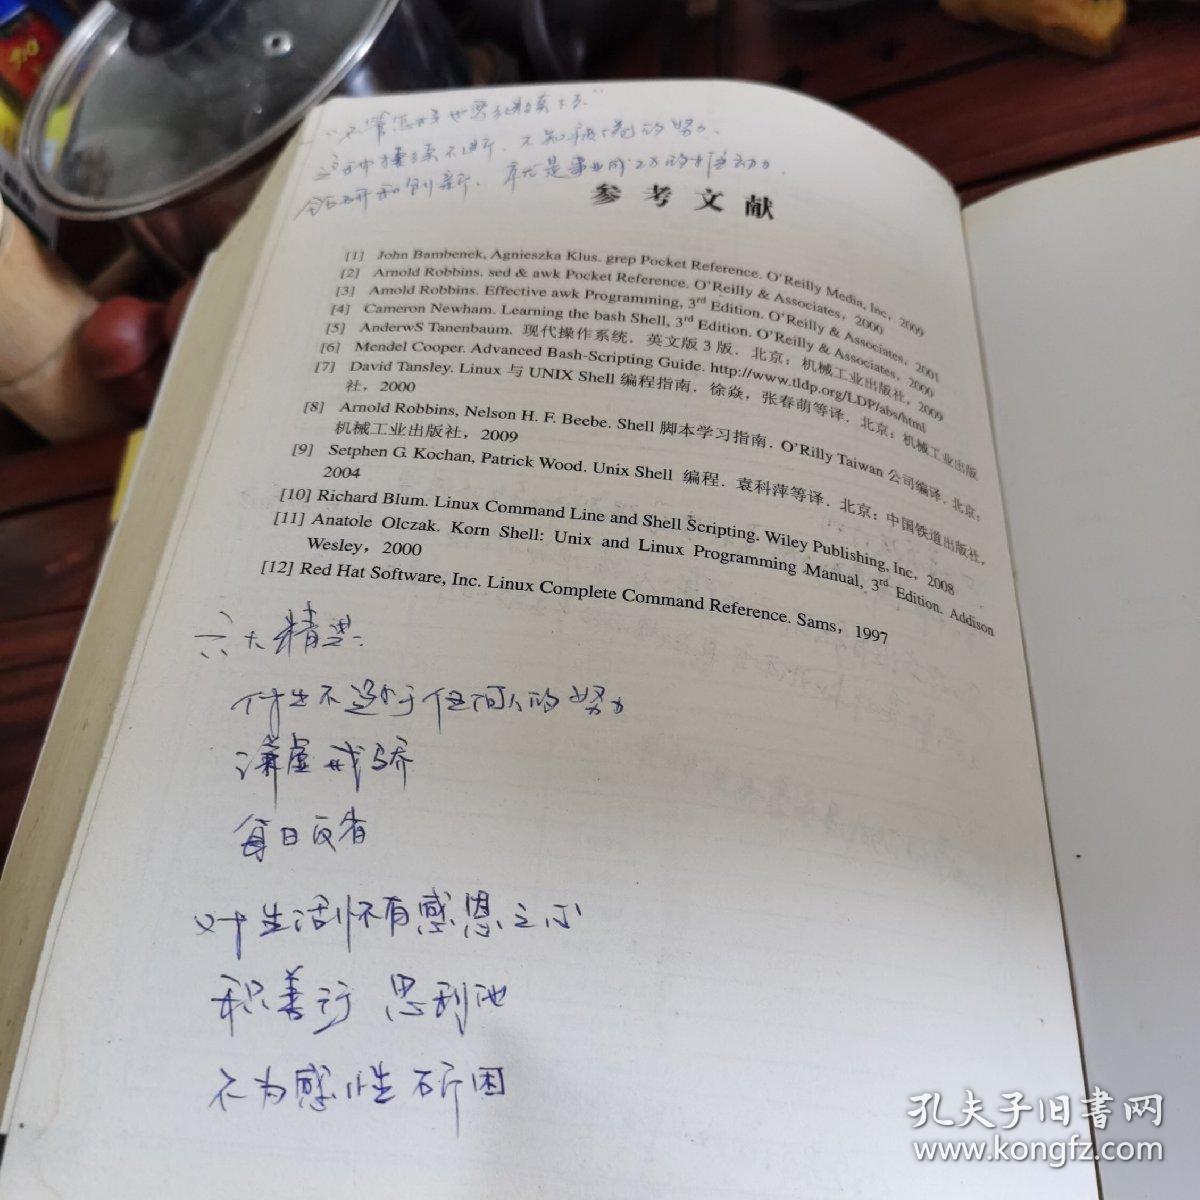 “不管怎样也要继续干下去”
这种持续不断、不知疲倦的努力、
钻研和创新、就是事业成功的推动力.
参考文献
[1] John Bambenek, Agnieszka Klus. grep Pocket Reference. O’Reilly Media, Inc, 2009
[2] Arnold Robbins. sed & awk Pocket Reference. O’Reilly & Associates, 2000
[3] Arnold Robbins. Effective awk Programming, 3rd Edition. O’Reilly & Associates, 2001
[4] Cameron Newham. Learning the bash Shell, 3rd Edition. O’Reilly & Associates, 2000
[5] AnderwS Tanenbaum. 现代操作系统. 英文版 3 版. 北京: 机械工业出版社, 2009
[6] Mendel Cooper. Advanced Bash-Scripting Guide. http://www.tldp.org/LDP/abs/html
[7] David Tansley. Linux 与 UNIX Shell 编程指南. 徐焱, 张春萌等译. 北京: 机械工业出版
社, 2000
[8] Arnold Robbins, Nelson H. F. Beebe. Shell 脚本学习指南. O’Rilly Taiwan 公司编译. 北京:
机械工业出版社, 2009
[9] Setphen G. Kochan, Patrick Wood. Unix Shell 编程. 袁科萍等译. 北京: 中国铁道出版社,
2004
[10] Richard Blum. Linux Command Line and Shell Scripting. Wiley Publishing, Inc, 2008
[11] Anatole Olczak. Korn Shell: Unix and Linux Programming Manual, 3rd Edition. Addison
Wesley, 2000
[12] Red Hat Software, Inc. Linux Complete Command Reference. Sams, 1997
六大精进:
付出不逊于任何人的努力
谦虚戒骄
每日反省
对生活怀有感恩之心
积善行 思利他
不为感性所困
孔夫子旧书网
www.kongfz.com